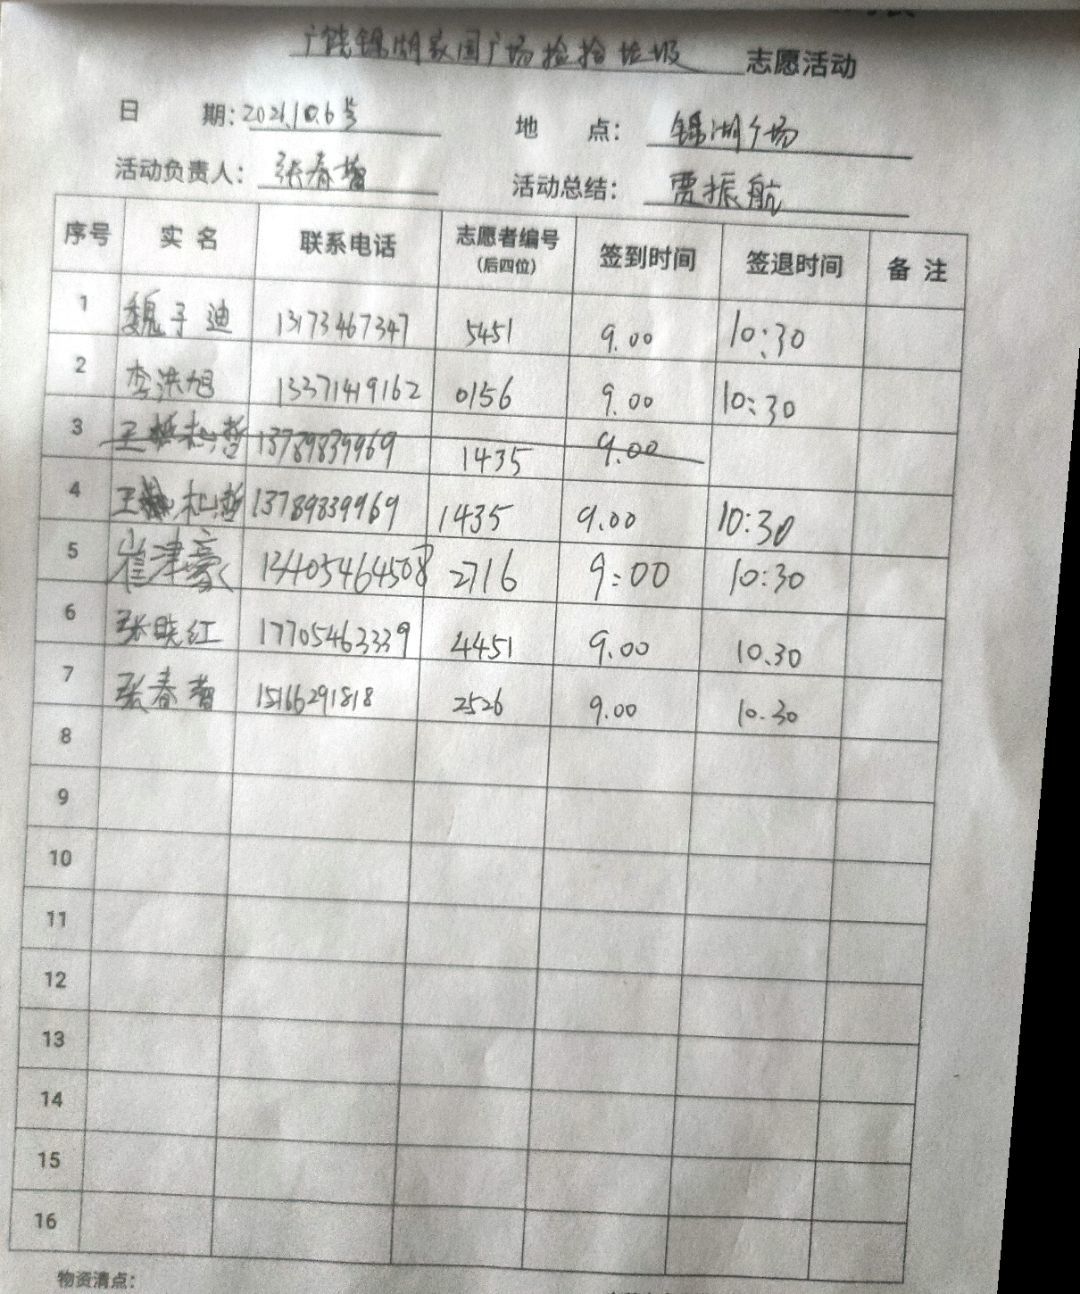 广饶锦湖家园广场捡拾垃圾 志愿活动
日 期：2021.10.6号 地 点： 锦湖广场
活动负责人： 张春增 活动总结： 贾振航
序号 实 名 联系电话 志愿者编号（后四位） 签到时间 签退时间 备 注
1 魏子迪 13173467347 5451 9.00 10:30
2 李洪旭 13371419162 0156 9.00 10:30
3 王彬哲 13789839969 1435 9.00
4 王彬哲 13789839969 1435 9.00 10:30
5 崔津豪 2716 9:00 10:30
6 张晓红 17705463339 4451 9.00 10.30
7 张春增 15166291818 2526 9.00 10.30
8
9
10
11
12
13
14
15
16
物资清点：